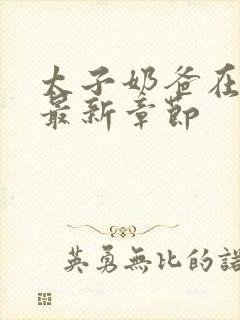 太子奶爸在
最新章節
英勇無比的諾